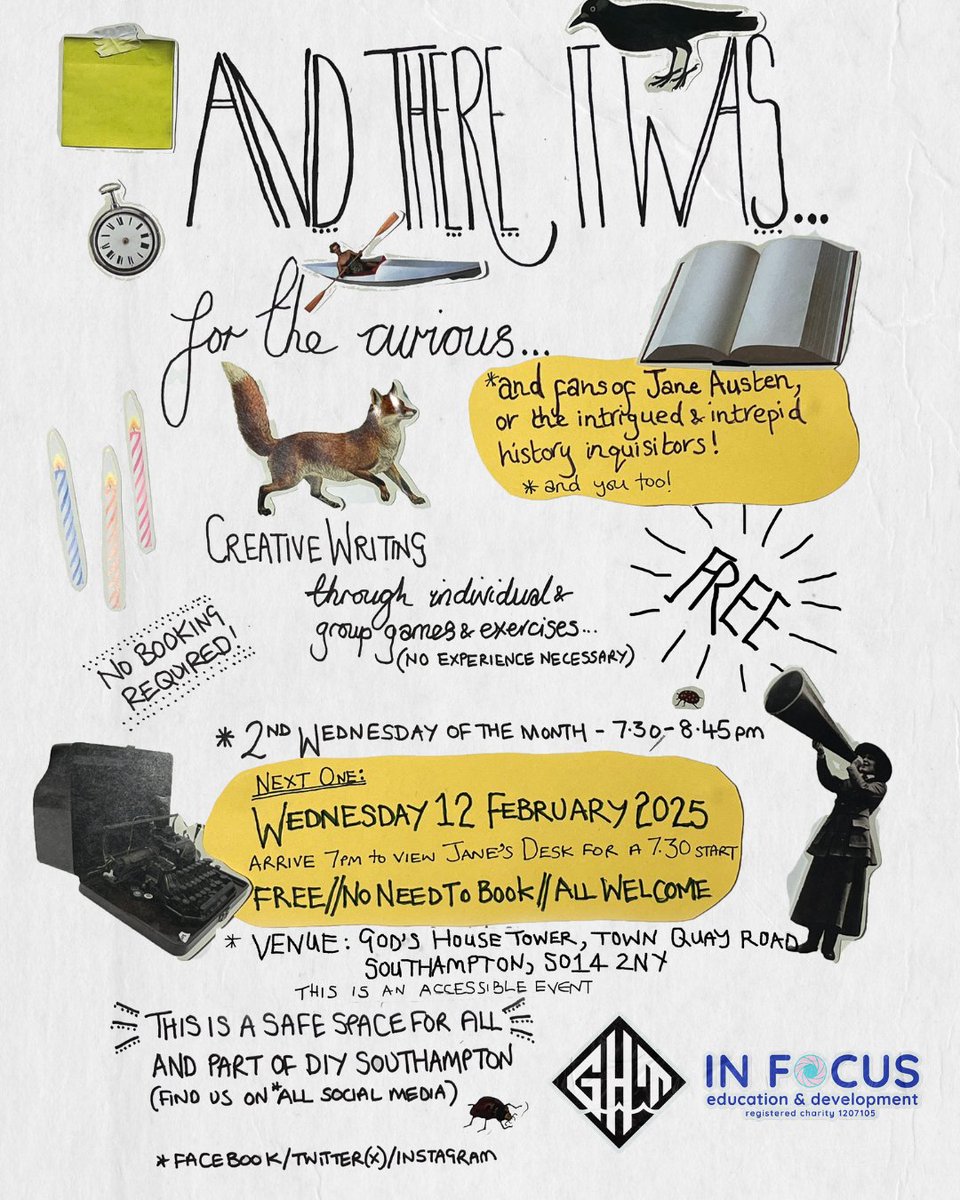 AND THERE IT WAS...
for the curious...
*and fans of Jane Austen,
or the intrigued & intrepid
history inquisitors!
* and you too!
CREATIVE WRITING
through individual &
group games & exercises...
(NO EXPERIENCE NECESSARY)
FREE
NO BOOKING
REQUIRED!
* 2ND WEDNESDAY OF THE MONTH - 7.30 - 8.45pm
NEXT ONE:
WEDNESDAY 12 FEBRUARY 2025
ARRIVE 7PM TO VIEW JANE'S DESK FOR A 7.30 START
FREE//NO NEED TO BOOK//ALL WELCOME
* VENUE: GOD'S HOUSE TOWER, TOWN QUAY ROAD
SOUTHAMPTON, SO14 2NY
THIS IS AN ACCESSIBLE EVENT
THIS IS A SAFE SPACE FOR ALL
AND PART OF DIY SOUTHAMPTON
(FIND US ON *ALL SOCIAL MEDIA)
*FACEBOOK/TWITTER(X)/INSTAGRAM
GHT
IN FOCUS
education & development
registered charity 1207105